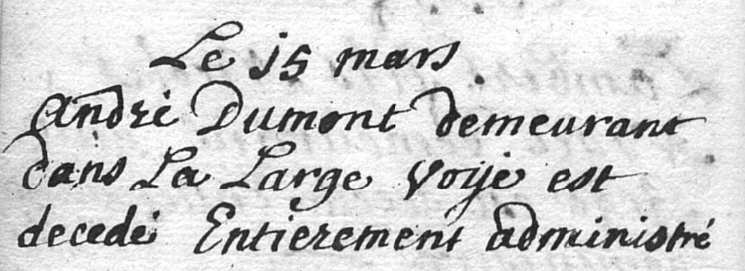 Le 15 mars
André Dumont demeurant
dans La Large Voije est
decedé Entierement administré